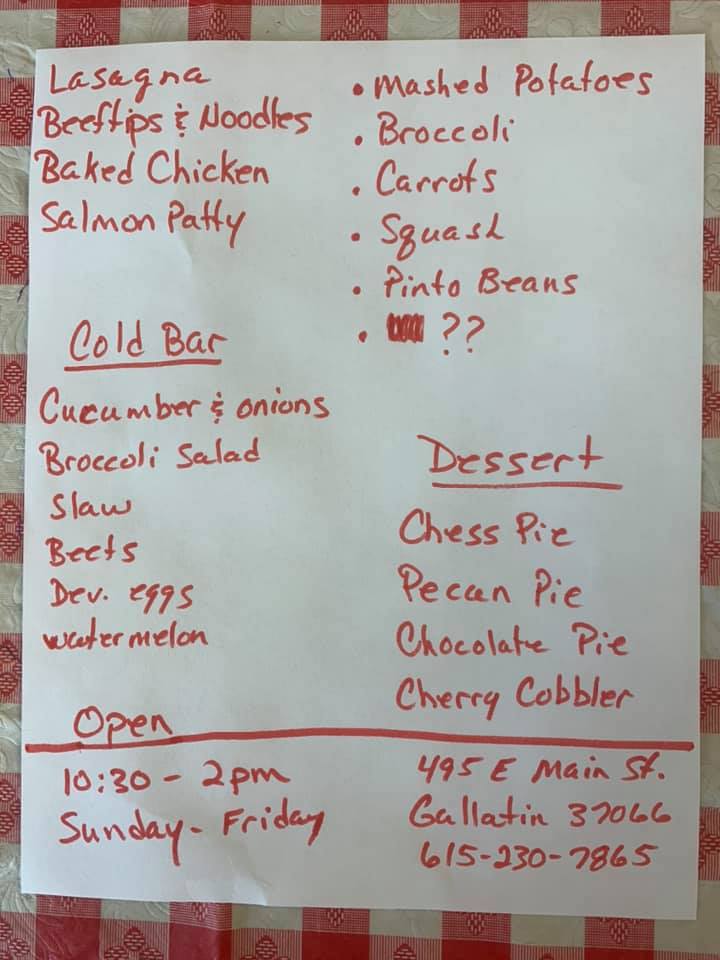 Lasagna
Beeftips & Noodles
Baked Chicken
Salmon Patty
• Mashed Potatoes
• Broccoli
• Carrots
• Squash
• Pinto Beans
• ??
Cold Bar
Cucumber & onions
Broccoli Salad
Slaw
Beets
Dev. eggs
watermelon
Dessert
Chess Pie
Pecan Pie
Chocolate Pie
Cherry Cobbler
Open
10:30 - 2pm
Sunday - Friday
495 E Main St.
Gallatin 37066
615-230-7865